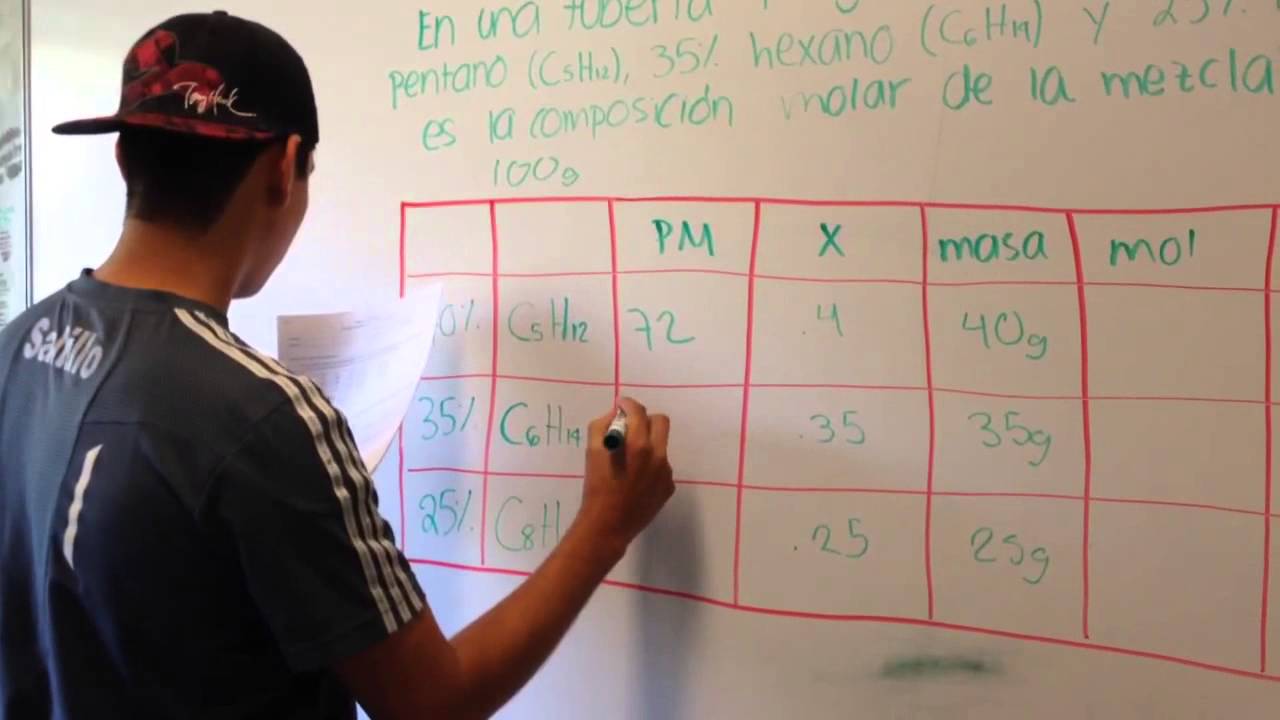 En una tubería
pentano (C5H12), 35% hexano (C6H14) y 25%
es la composición molar de la mezcla
100g
PM X masa mol
0% C5H12 72 .4 40g
35% C6H14 .35 35g
25% C8H .25 25g
Tony Hawk
Saltillo